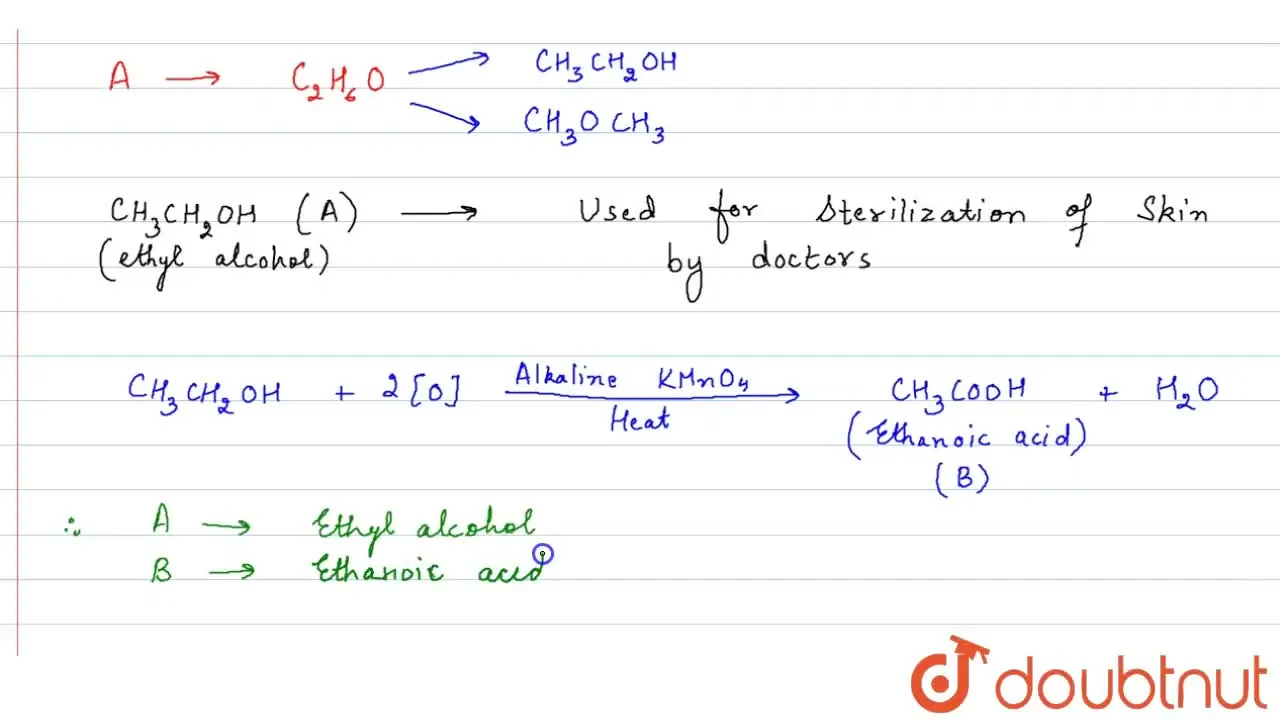 A → C₂H₆O
CH₃CH₂OH
CH₃OCH₃
CH₃CH₂OH (A) → Used for Sterilization of Skin
(ethyl alcohol) by doctors
CH₃CH₂OH + 2[O] Alkaline KMnO₄ → CH₃COOH + H₂O
Heat
(Ethanoic acid)
(B)
∴ A → Ethyl alcohol
B → Ethanoic acid
doubtnut